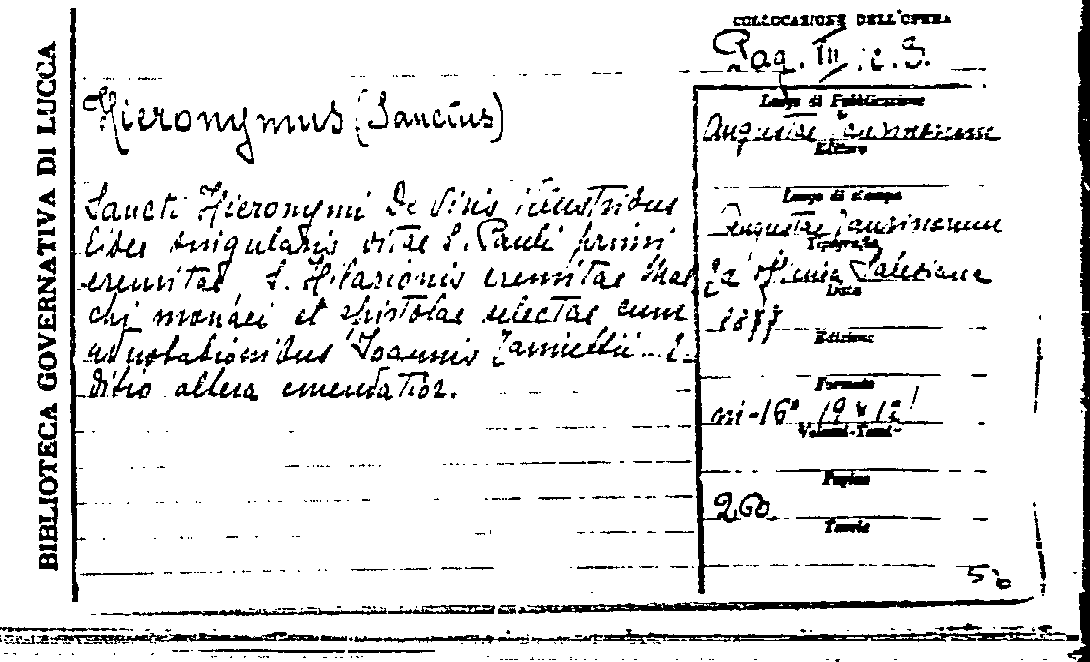 BIBLIOTECA GOVERNATIVA DI LUCCA
COLLOCAZIONE DELL'OPERA
Pag. III. c. 3.
Hieronymus (Sanctus)
Sancti Hieronymi De Viris illustribus
liber singularis vitae S. Pauli primi
eremitae S. Hilarionis eremitae Mal
chi monaci et epistolae selectae cum
adnotationibus Joannis Tamiettii - E
ditio altera emendatior.
Luogo di Pubblicazione
Augustae Taurinorum
Editore
Luogo di stampa
Augustae Taurinorum
Tipografia
Salesiana
Data
1877
Edizione
Formato
in-16° 19 x 12
Volumi-Tomi
Pagine
260
Tavole